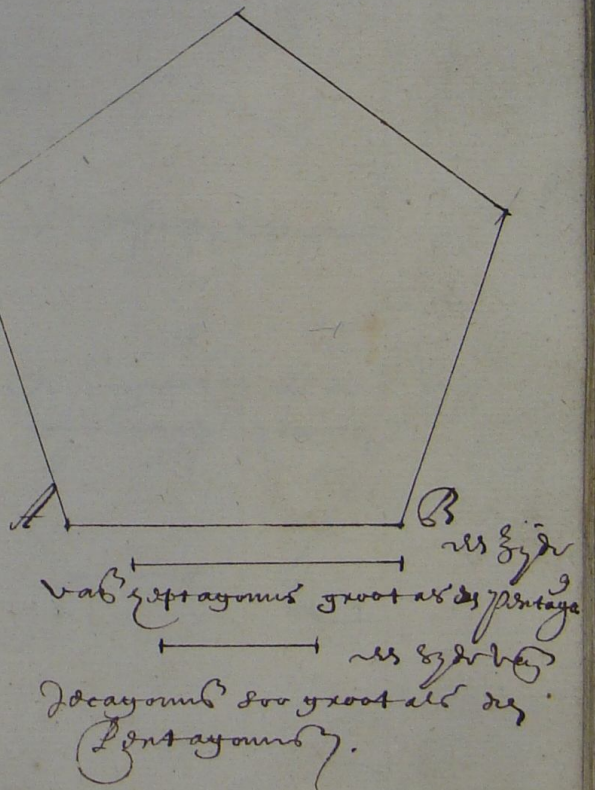 A B
een zijde
van heptagonus groot als een pentago
een zijde van
Decagonus soo groot als den
Pentagonus.